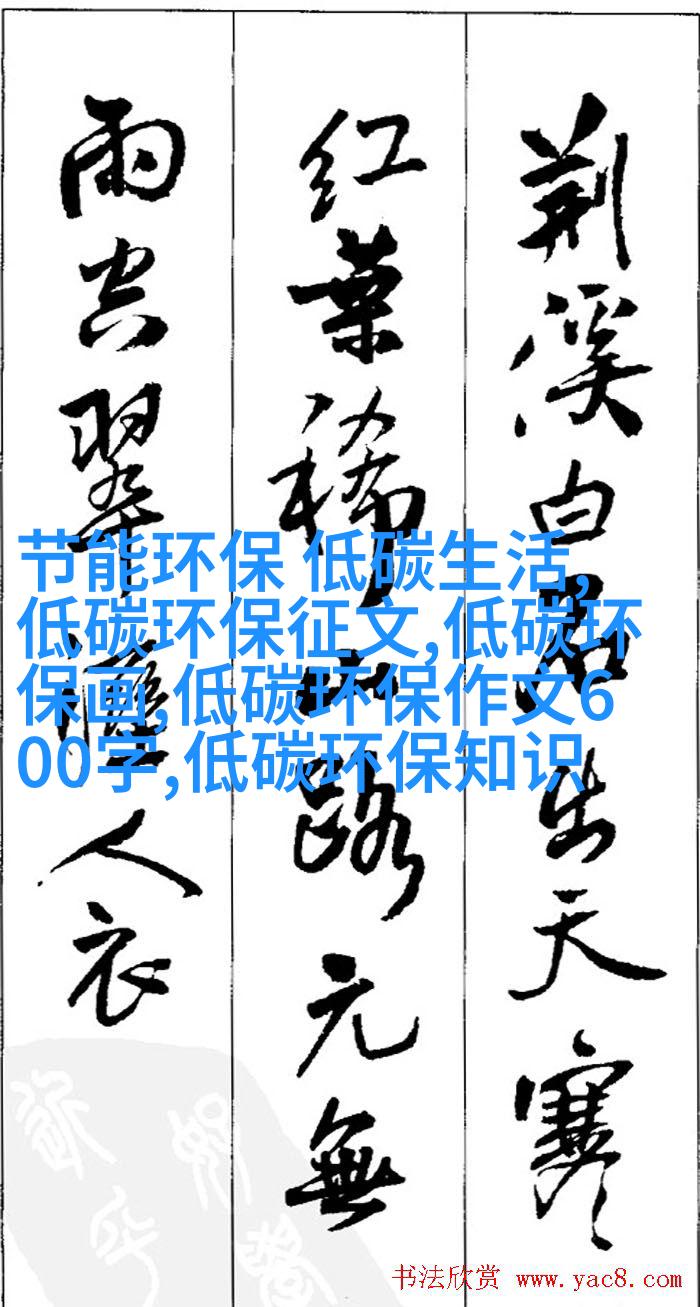 荆溪白石出天寒
红葉稀山路元無
雨空翠濕人衣
节能环保 低碳生活,
低碳环保征文,低碳环
保画,低碳环保作文6
00字,低碳环保知识
书法欣赏 www.yac8.com